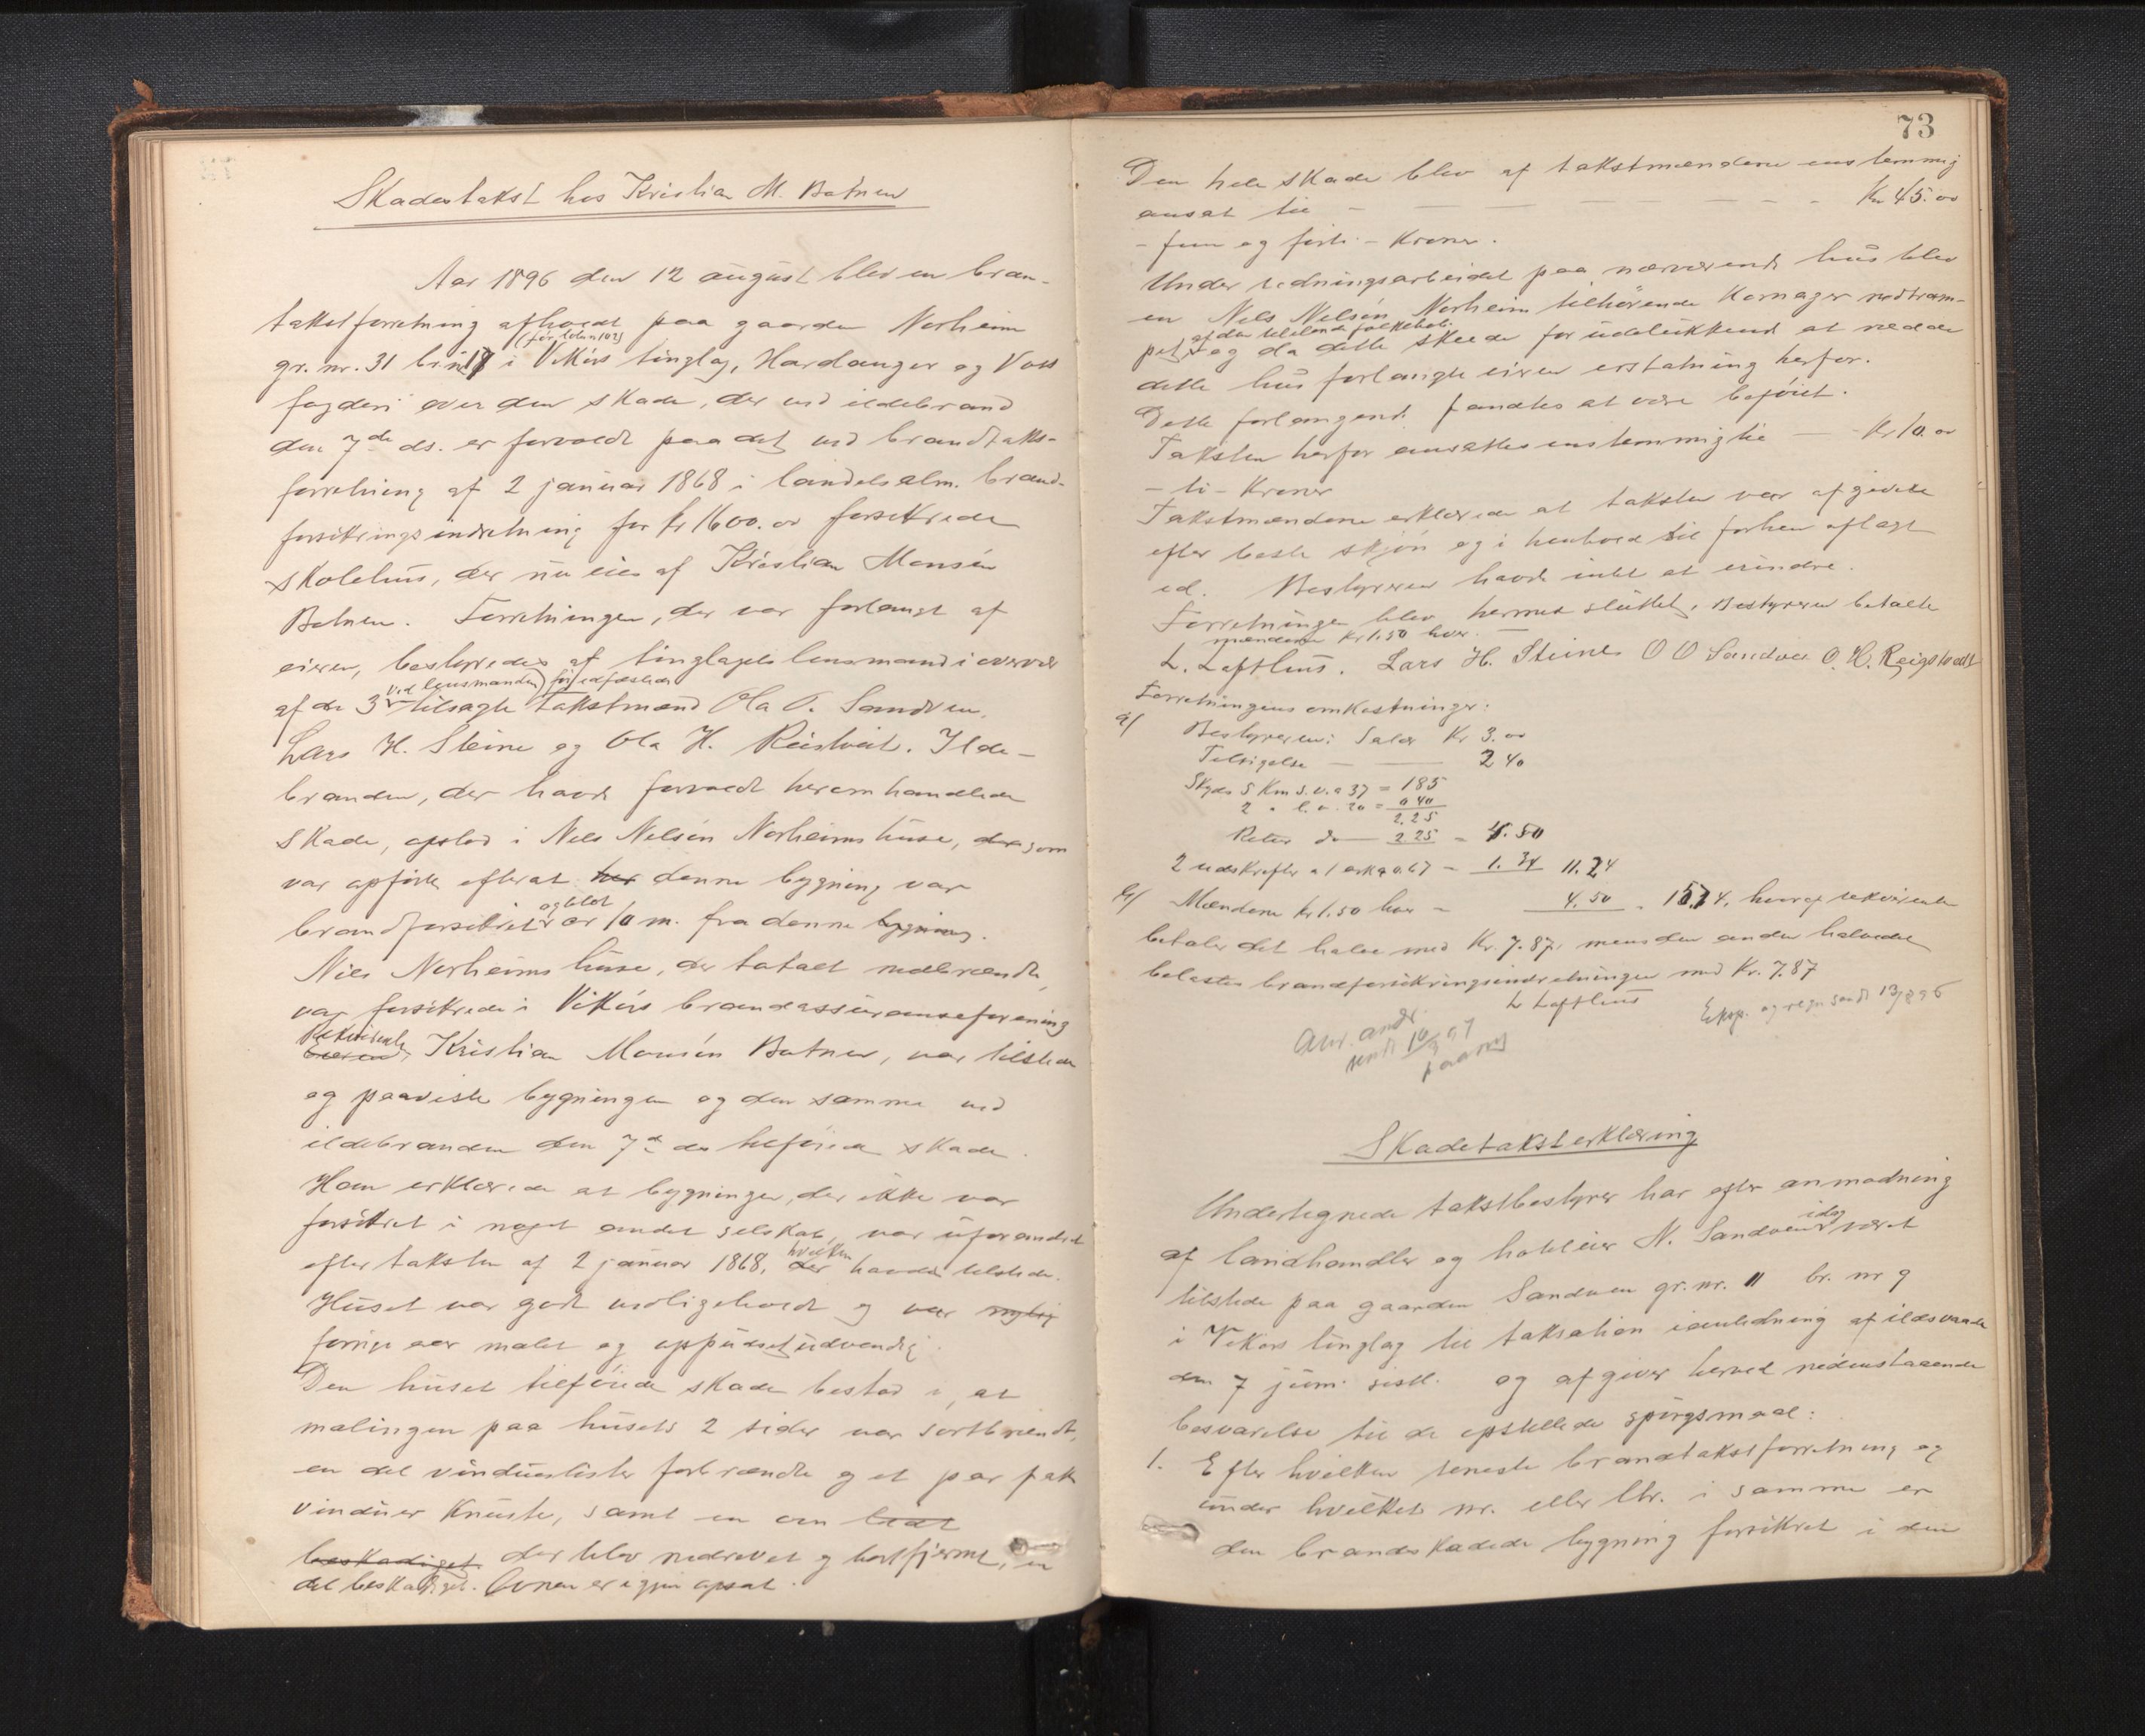 Skadestakst hos Kristian M. Botnen
Aar 1896 den 12 august blev en bran-
takstforretning afholdt paa gaarden Norheim
(før løbn 102)
gr. nr. 31 br. nr 17 i Vikørs tinglag, Hardanger og Voss
fogderi over den skade, der ved ildebrand
den 7de ds. er forvoldt paa det ved brandtakst-
forretning af 2 januar 1868 i landets alm. brand-
forsikringsindretning for kr 1600.00 forsikrede
skolehus, der nu eies af Kristian Monsén
Botnen. Forretningen, der var forlangt af
eieren, bestyredes af tinglagets lensmand i overvær
ved lensmanden før edfæstede
af de 3 tilsagte takstmænd Ola O. Sandven,
Lars H. Steine og Ola H. Reistveit. Ilde-
branden, der havde forvoldt heromhandlede
skade, opstod i Nels Nelsén Norheims huse, der som
var opført efterat her denne bygning var
og blot
brandforsikret er 10 m. fra denne bygning.
Nils Norheims huse, der totalt nedbrændte,
var forsikrede i Vikørs brandassuranseforening
Rekvirenten
Eieren, Kristian Monsén Botnen, var tilstede
og paaviste bygningen og den samme ved
ildebranden den 7de ds tilføiede skade.
Han erklærede at bygningen, der ikke var
forsikret i noget andet selskab, var uforandret
efter taksten af 2 januar 1868, der havdes tilstede.
hvilken
Huset var godt vedligeholdt og var nylig
forrige aar malet og oppudset udvendig.
Den huset tilføiede skade bestod i, at
malingen paa husets 2 sider var sortbrændt,
en del vindueslister forbrændte og et par fak
vinduer knuste, samt en ovn lidt
beskadiget der blev nedrevet og bortfjernet, en
del beskadiget. Ovnen er igjen opsat.
73
Den hele skade blev af takstmændene enstemmig
ansat til - - - - - - Kr 45.00
- fem og forti - Kroner.
Under redningsarbeidet paa nærværende hus blev
en Nels Nelsén Norheim tilhørende Kornager nedtram-
af den tililende folkehob
pet og da dette skede for udelukkende at redde
dette hus forlangte eieren erstatning herfor.
Dette forlangende fandtes at være beføiet.
Taksten herfor ansattes enstemmig til - Kr 10.00
- ti - Kroner
Takstmændene erklærede at taksten var afgivet
efter beste skjøn og i henhold til forhen aflagt
ed. Bestyreren havde intet at erindre.
Forretningen blev hermed sluttet. Bestyreren betalte
mændene Kr 1.50 hver. -
L. Lofthus. Lars H. Steine O O Sandven O. H. Reigstvedt
Forretningens omkostninger:
a/ Bestyreren: Salær Kr 3.00
Tilsigelse - 2 40
Skyds 5 Km s.v. a 37 = 185
2 " l.v. 20 = 0 40
2.25
Retur do - 2.25 = 4.50
2 udskrifter a 1 ark a 0.67 - 1.34 11.24
b/ Mændene Kr 1.50 hver - 4.50 - 15.74, hvoraf rekvirenten
betaler det halve med Kr. 7.87, mens den anden halvdel
belastes brandforsikringsindretningen med Kr. 7.87
L Lofthus
Exp. og regn sendt 13/8 96
Anv.
sendt 10/9 97
Skadetaksterklæring
Undertegnede takstbestyrer har efter anmodning
idag
af landhandler og hoteleier N. Sandven været
tilstede paa gaarden Sandven gr. nr. 11 br. nr 9
i Vikørs tinglag til taksation i anledning af ildsvaade
den 7 juni sidstl. og afgiver herved nedenstaaende
besvarelse til de opstillede spørgsmaal:
1. Efter hvilken seneste brandtakstforretning og
under hvilket nr. eller ltr. i samme er
den brandskadede bygning forsikret i den